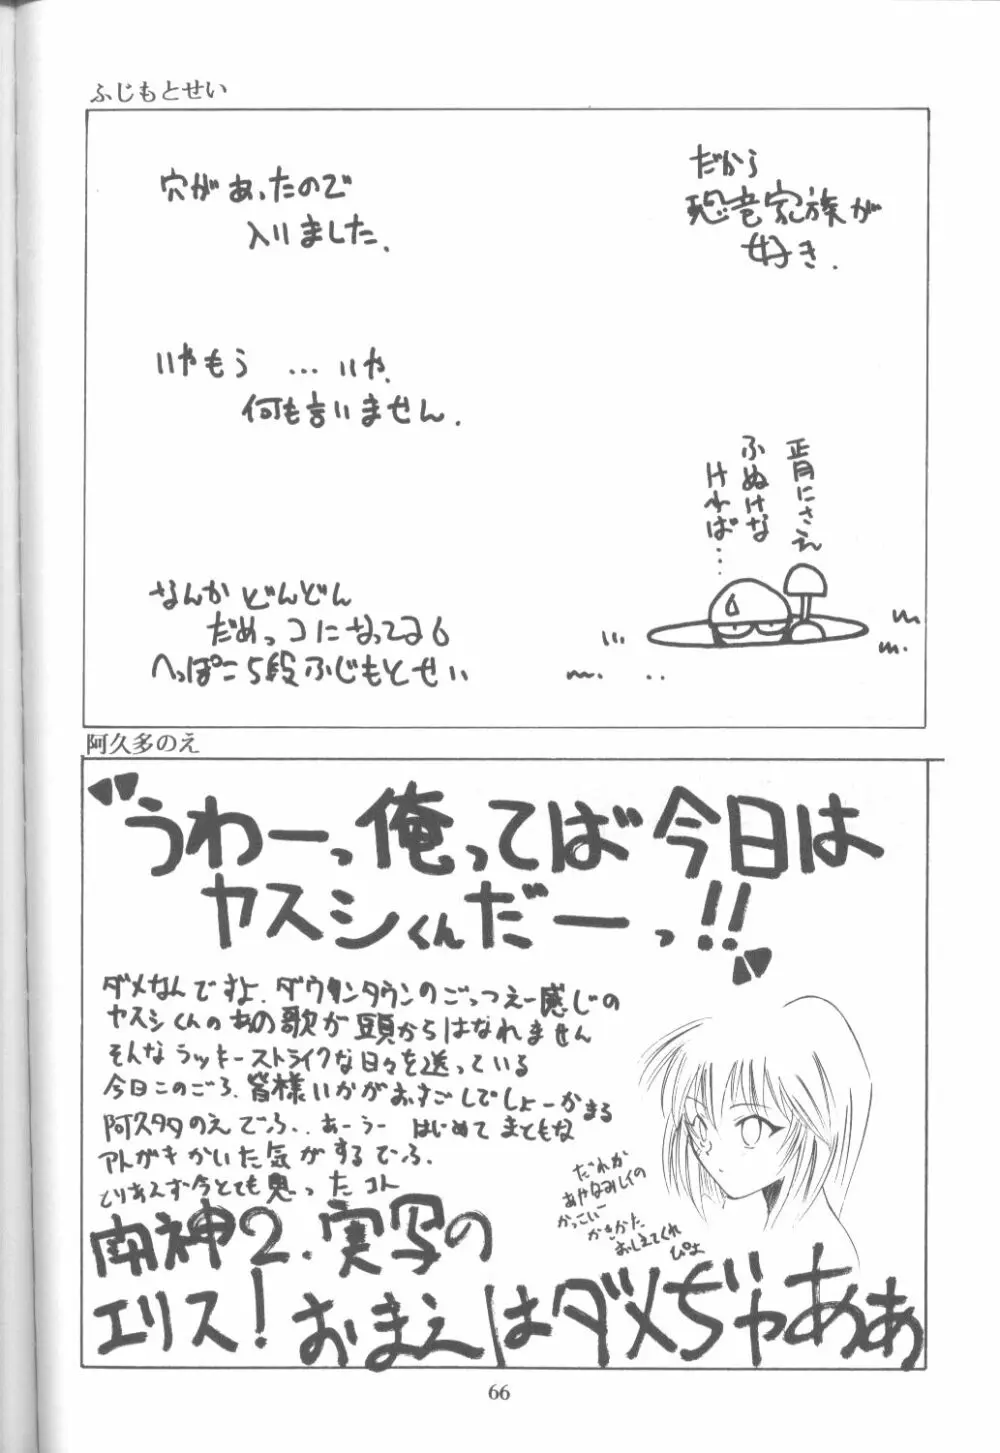 ふじもとせい
穴があったので
入りました.
だから
恐竜家族が
好き.
いやもう … いや.
何も言いません.
正月にさえ
ふぬけな
ければ…
なんか どんどん
だめっコになってる6
へっぽこ5段ふじもとせい
阿久多のえ
"うわーっ俺ってば今日は
ヤスシくんだーっ!!"
ダメなんですよ. ダウンタウンのごっつえー感じの
ヤスシくんのあの歌が頭からはなれません
そんなラッキーストライクな日々を送っている
今日このごろ. 皆様いかがおすごしでしょーかまる
阿久多のえでふ. あーうー はじめてまともな
アトがきかいた気がするでふ.
とりあえず今とても思ったコト
だれか
あやなみレイの
かっこいー
かきかた
おしえてくれ
ぴよ
南神2. 実写の
エリス! おまえはダメぢゃあぁ
66